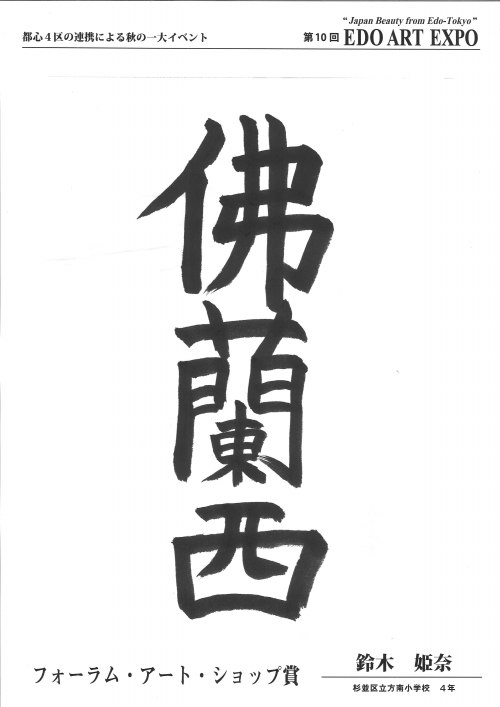 都心４区の連携による秋の一大イベント
“Japan Beauty from Edo-Tokyo”
第10回 EDO ART EXPO
佛蘭西
フォーラム・アート・ショップ賞
鈴木　姫奈
杉並区立方南小学校　４年